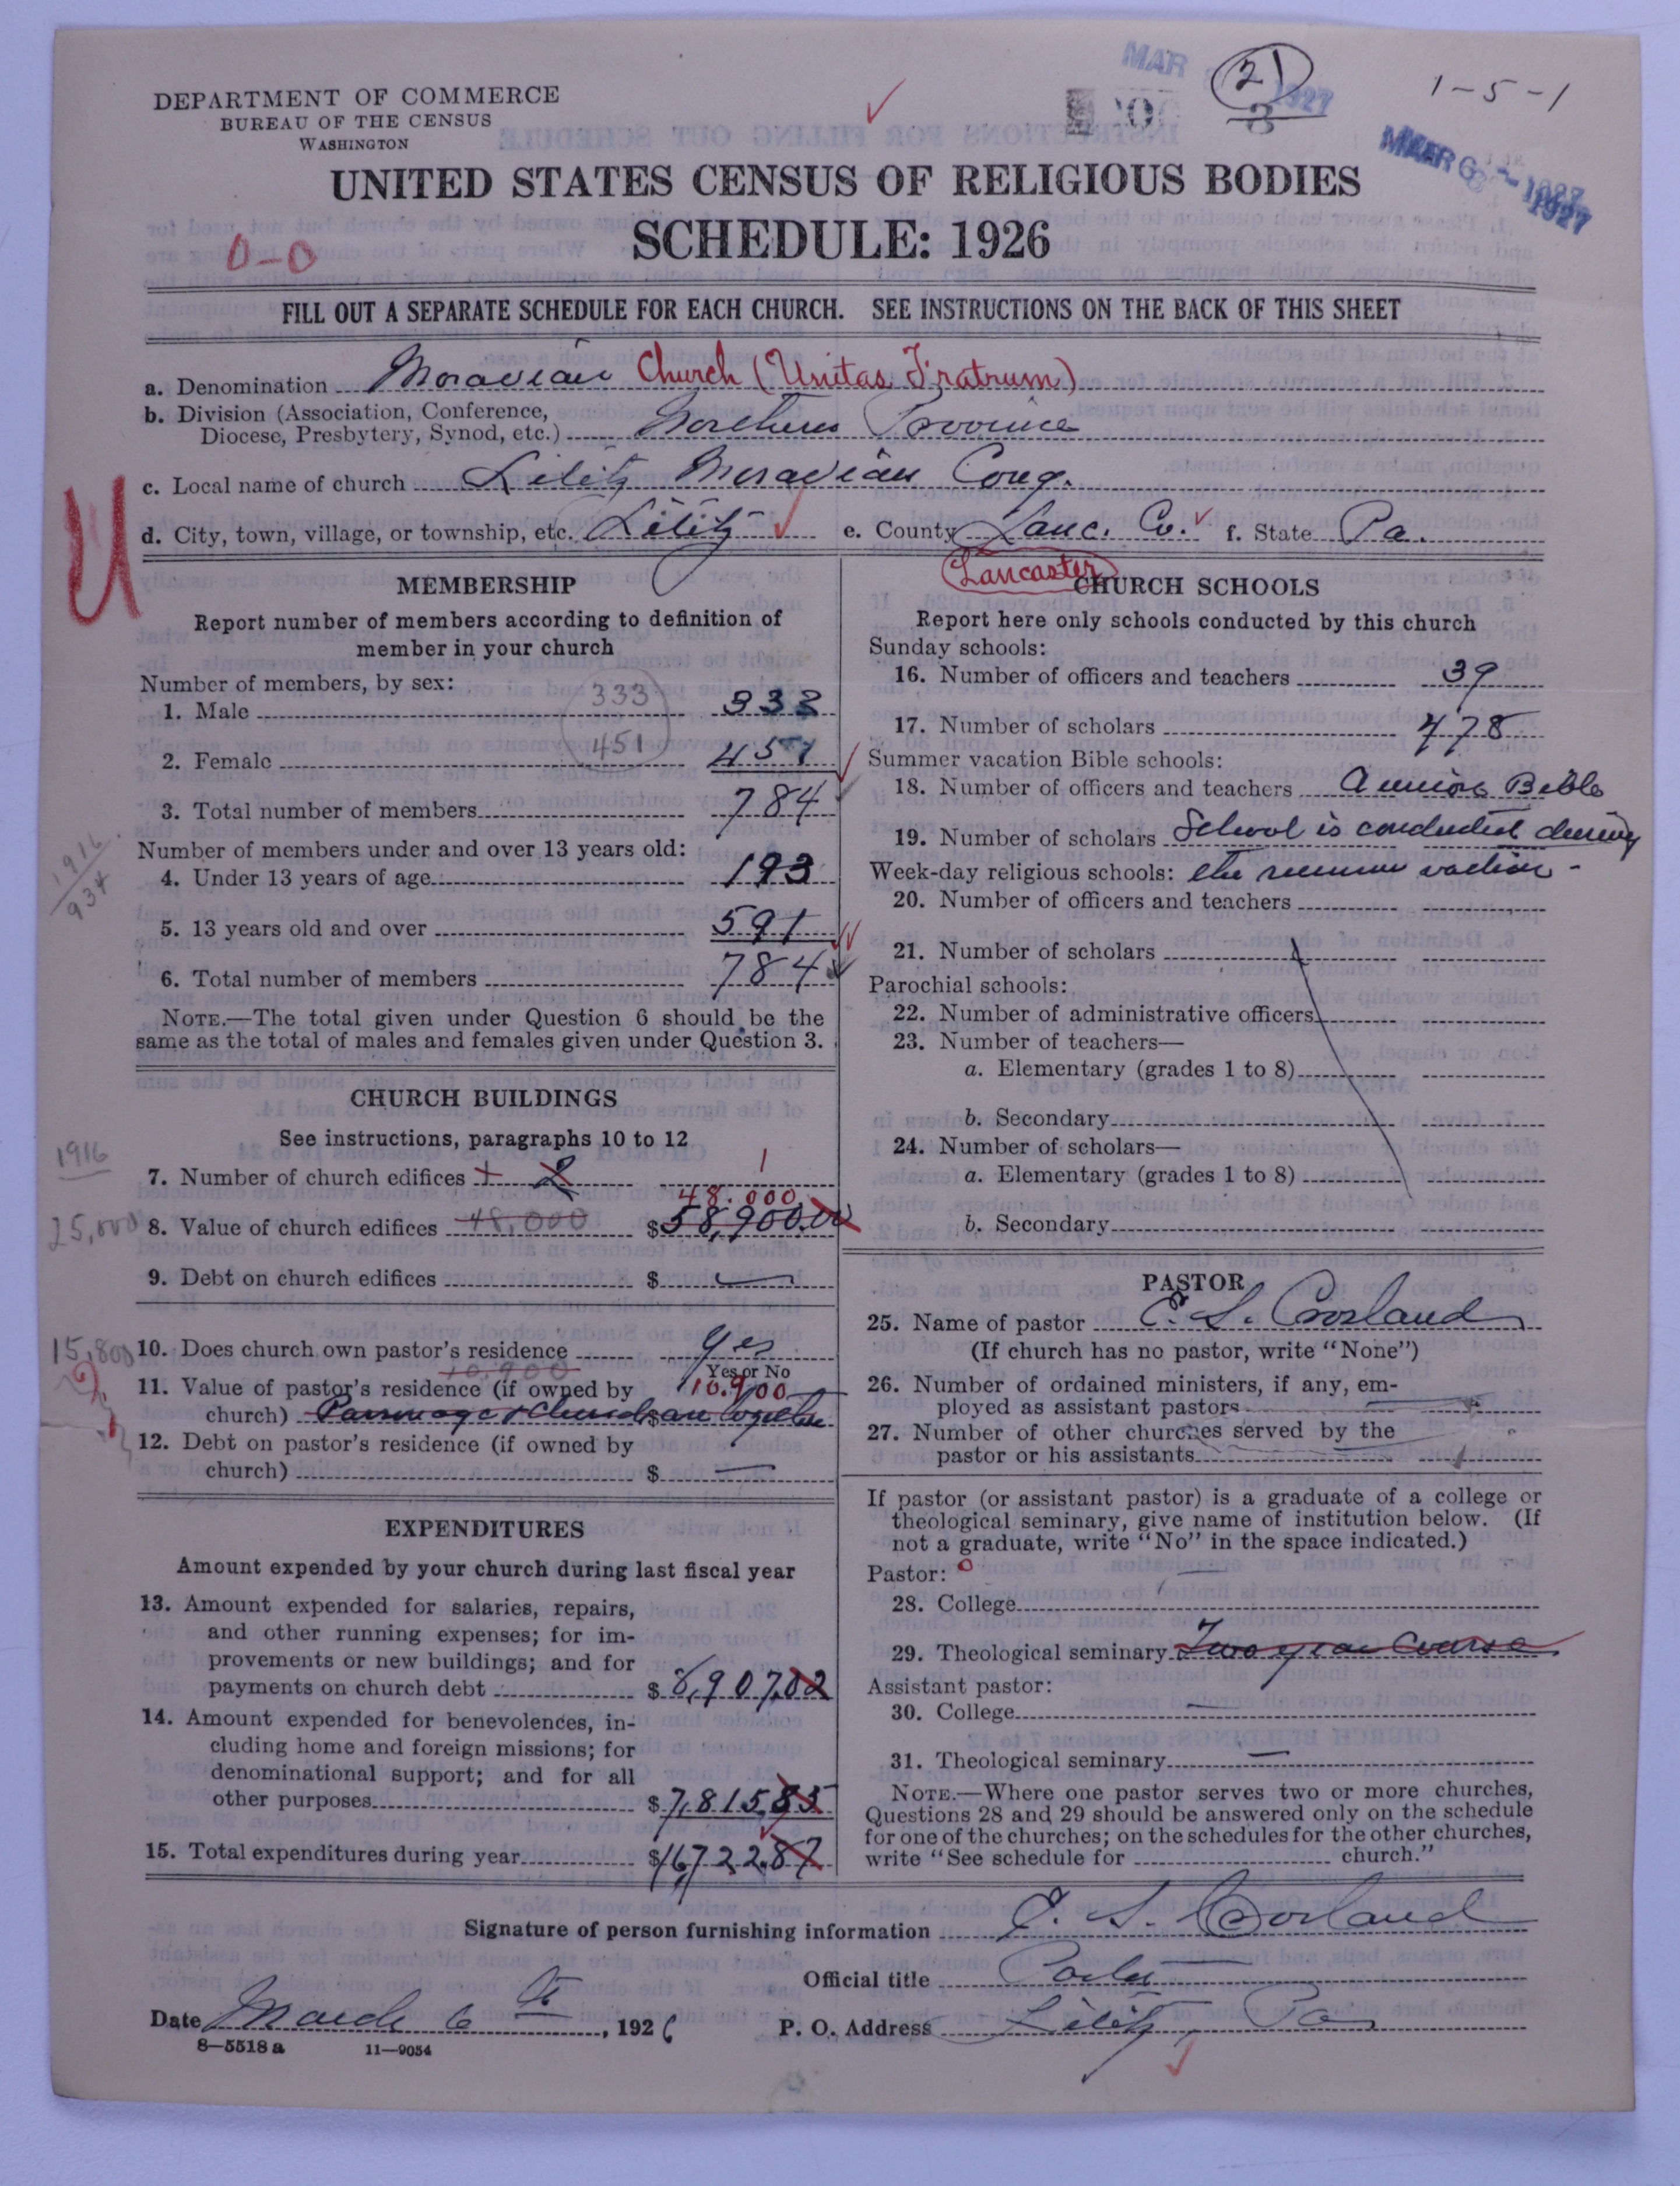 MAR 1927
2
3
1-5-1
DEPARTMENT OF COMMERCE
BUREAU OF THE CENSUS
WASHINGTON
MAR 6 - 1927
UNITED STATES CENSUS OF RELIGIOUS BODIES
SCHEDULE: 1926
0-0
FILL OUT A SEPARATE SCHEDULE FOR EACH CHURCH. SEE INSTRUCTIONS ON THE BACK OF THIS SHEET
a. Denomination Moravian Church (Unitas Fratrum)
b. Division (Association, Conference,
Diocese, Presbytery, Synod, etc.) Northern Province
c. Local name of church Lititz Moravian Cong.
d. City, town, village, or township, etc. Lititz e. County Lanc. Co. f. State Pa.
Lancaster
U
MEMBERSHIP
Report number of members according to definition of
member in your church
Number of members, by sex:
1. Male 333 333
2. Female 451 451
3. Total number of members 784
Number of members under and over 13 years old:
1916
934
4. Under 13 years of age 193
5. 13 years old and over 591
6. Total number of members 784
NOTE.—The total given under Question 6 should be the
same as the total of males and females given under Question 3.
CHURCH BUILDINGS
See instructions, paragraphs 10 to 12
1916
7. Number of church edifices 2 1
48.000
25,000 8. Value of church edifices 48,000 $58,900.00
9. Debt on church edifices $ —
15,800 10. Does church own pastor's residence Yes
Yes or No
10,900
11. Value of pastor's residence (if owned by 10.900
church) Parsonage & Church are together $
12. Debt on pastor's residence (if owned by
church) $ —
EXPENDITURES
Amount expended by your church during last fiscal year
13. Amount expended for salaries, repairs,
and other running expenses; for im-
provements or new buildings; and for
payments on church debt $8,907.02
14. Amount expended for benevolences, in-
cluding home and foreign missions; for
denominational support; and for all
other purposes $7,815.85
15. Total expenditures during year $16,722.87
CHURCH SCHOOLS
Report here only schools conducted by this church
Sunday schools:
16. Number of officers and teachers 39
17. Number of scholars 478
Summer vacation Bible schools:
18. Number of officers and teachers A union Bible
19. Number of scholars School is conducted during
Week-day religious schools: the summer vacation -
20. Number of officers and teachers
21. Number of scholars
Parochial schools:
22. Number of administrative officers
23. Number of teachers—
a. Elementary (grades 1 to 8)
b. Secondary
24. Number of scholars—
a. Elementary (grades 1 to 8)
b. Secondary
PASTOR
25. Name of pastor E. S. Crosland
(If church has no pastor, write "None")
26. Number of ordained ministers, if any, em-
ployed as assistant pastors —
27. Number of other churches served by the
pastor or his assistants
If pastor (or assistant pastor) is a graduate of a college or
theological seminary, give name of institution below. (If
not a graduate, write "No" in the space indicated.)
Pastor: 0
28. College —
29. Theological seminary Two year Course
Assistant pastor:
30. College —
31. Theological seminary —
NOTE.—Where one pastor serves two or more churches,
Questions 28 and 29 should be answered only on the schedule
for one of the churches; on the schedules for the other churches,
write "See schedule for church."
Signature of person furnishing information E. S. Crosland
Official title Pastor
Date March 6th, 1926 P. O. Address Lititz, Pa
8—5518 a 11—9054